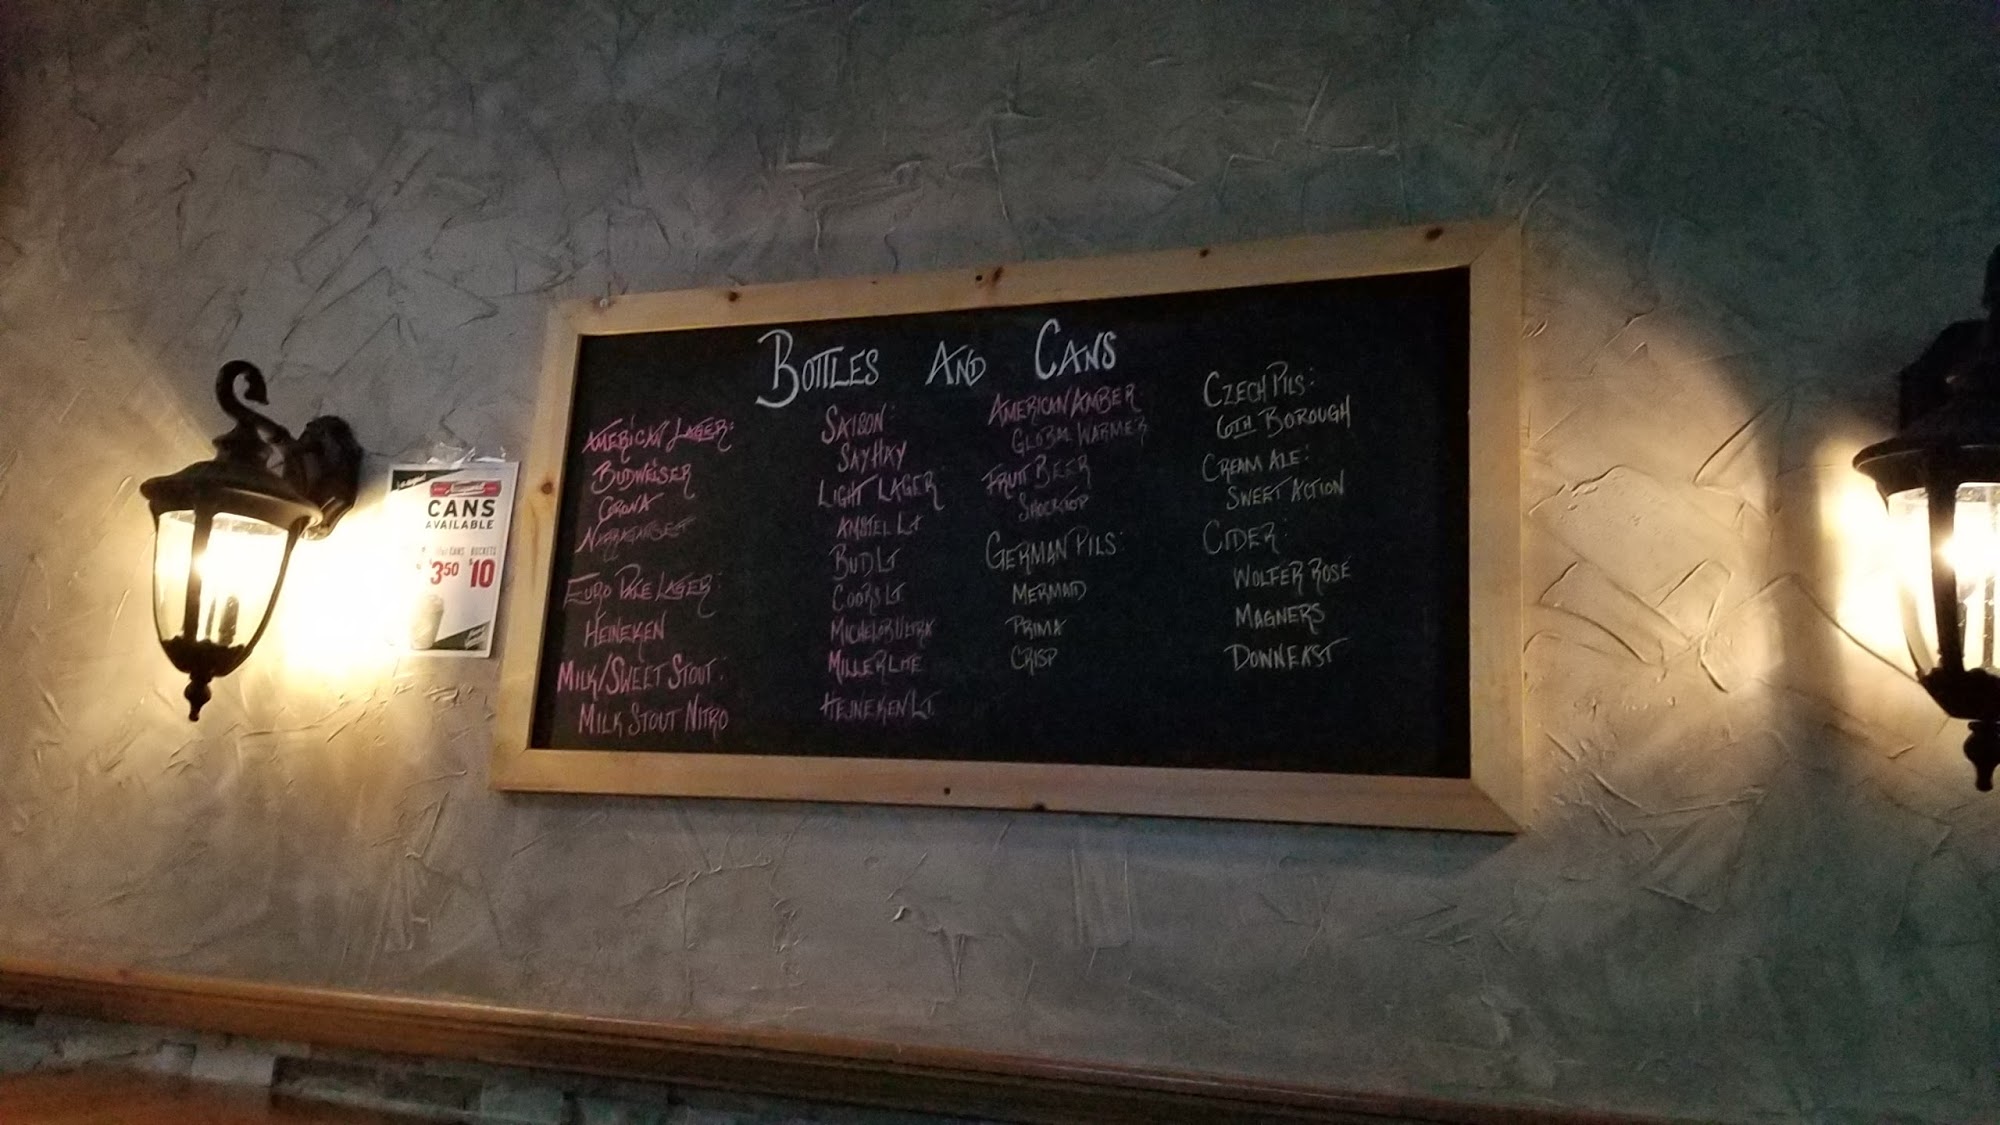 BOTTLES AND CANS
AMERICAN LAGER:
BUDWEISER
CORONA
NARRAGANSETT
EURO PALE LAGER:
HEINEKEN
MILK/SWEET STOUT:
MILK STOUT NITRO
SAISON:
SAYHAY
LIGHT LAGER
AMSTEL LT
BUD LT
COORS LT
MICHELOB ULTRA
MILLER LITE
HEINEKEN LT.
AMERICAN AMBER
GLOBAL WARMER
FRUIT BEER
SHOCKTOP
GERMAN PILS:
MERMAID
PRIMA
CRISP
CZECH PILS:
6TH BOROUGH
CREAM ALE:
SWEET ACTION
CIDER:
WOLFER ROSÉ
MAGNERS
DOWNEAST
CANS
AVAILABLE
CANS BUCKETS
$3.50 $10